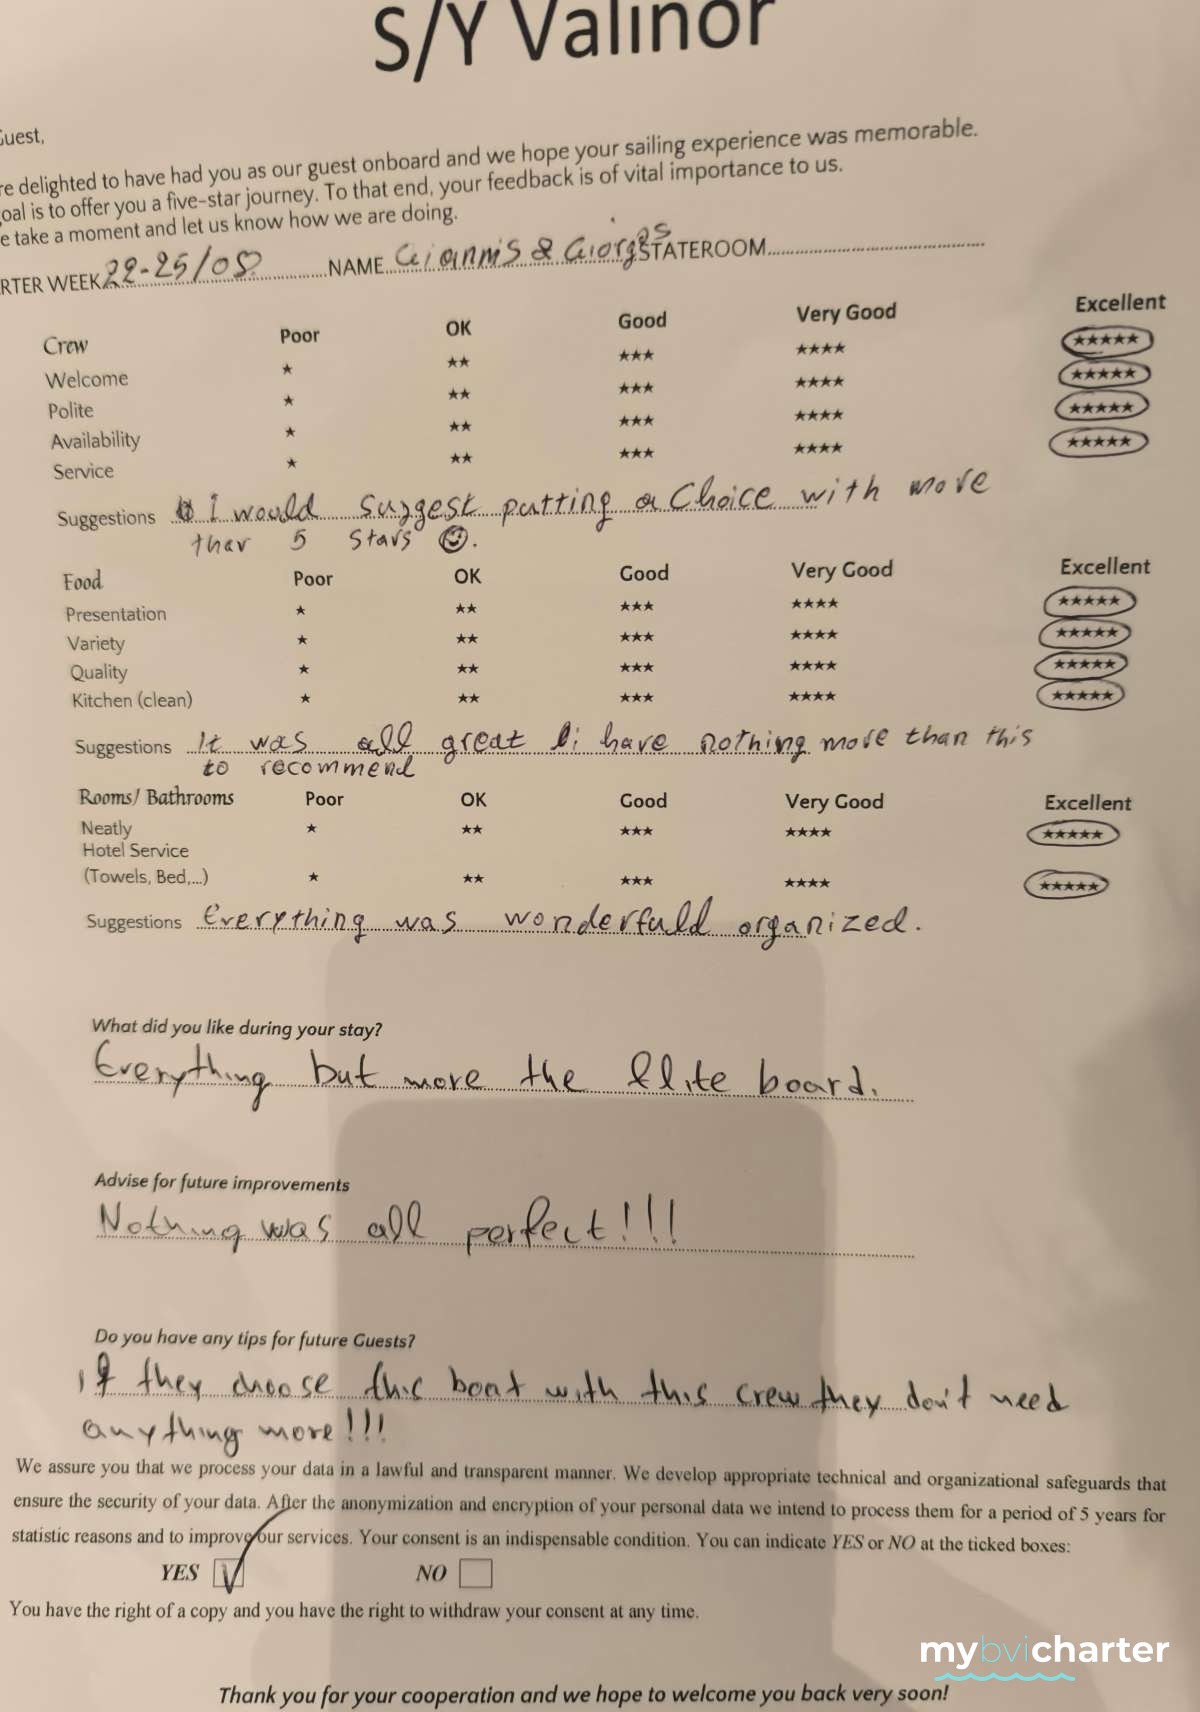 S/Y Valinor
Guest,
re delighted to have had you as our guest onboard and we hope your sailing experience was memorable.
oal is to offer you a five-star journey. To that end, your feedback is of vital importance to us.
e take a moment and let us know how we are doing.
RTER WEEK 22-25/08 NAME Giannis & Giorgos STATEROOM
Crew Poor OK Good Very Good Excellent
Welcome ★ ★★ ★★★ ★★★★ ★★★★★
Polite ★ ★★ ★★★ ★★★★ ★★★★★
Availability ★ ★★ ★★★ ★★★★ ★★★★★
Service ★ ★★ ★★★ ★★★★ ★★★★★
Suggestions I would suggest putting a Choice with more
than 5 stars ☺.
Food Poor OK Good Very Good Excellent
Presentation ★ ★★ ★★★ ★★★★ ★★★★★
Variety ★ ★★ ★★★ ★★★★ ★★★★★
Quality ★ ★★ ★★★ ★★★★ ★★★★★
Kitchen (clean) ★ ★★ ★★★ ★★★★ ★★★★★
Suggestions It was all great i have nothing more than this
to recommend
Rooms/ Bathrooms Poor OK Good Very Good Excellent
Neatly ★ ★★ ★★★ ★★★★ ★★★★★
Hotel Service
(Towels, Bed,...) ★ ★★ ★★★ ★★★★ ★★★★★
Suggestions Everything was wonderfuld organized.
What did you like during your stay?
Everything but more the Elite board.
Advise for future improvements
Nothing was all perfect!!!
Do you have any tips for future Guests?
If they choose this boat with this crew they don't need
anything more!!!
We assure you that we process your data in a lawful and transparent manner. We develop appropriate technical and organizational safeguards that
ensure the security of your data. After the anonymization and encryption of your personal data we intend to process them for a period of 5 years for
statistic reasons and to improve our services. Your consent is an indispensable condition. You can indicate YES or NO at the ticked boxes:
YES NO
You have the right of a copy and you have the right to withdraw your consent at any time.
mybvicharter
Thank you for your cooperation and we hope to welcome you back very soon!